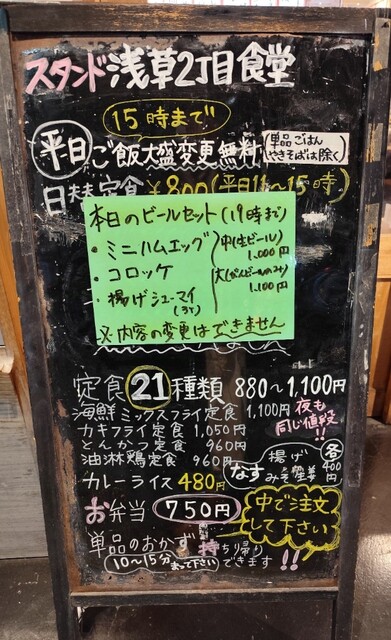 スタンド浅草2丁目食堂
15時まで
平日ご飯大盛変更無料(単品ごはん やきそばは除く)
日替定食¥800(平日11〜15時)
本日のビールセット(19時まで)
・ミニハムエッグ
・コロッケ
・揚げシューマイ
(3ケ)
中(生ビール)
1,000円
大(びんビールのみ)
1,100円
※内容の変更はできません
定食21種類 880〜1,100円
海鮮ミックスフライ定食 1,100円
カキフライ定食 1,050円
とんかつ定食 960円
油淋鶏定食 960円
夜も
同じ値段!!
カレーライス 480円
なす 揚げ みそ 生姜 各400円
お弁当 750円
中で注文
して下さい
単品のおかず 持ち帰り
10〜15分まって下さい できます!!